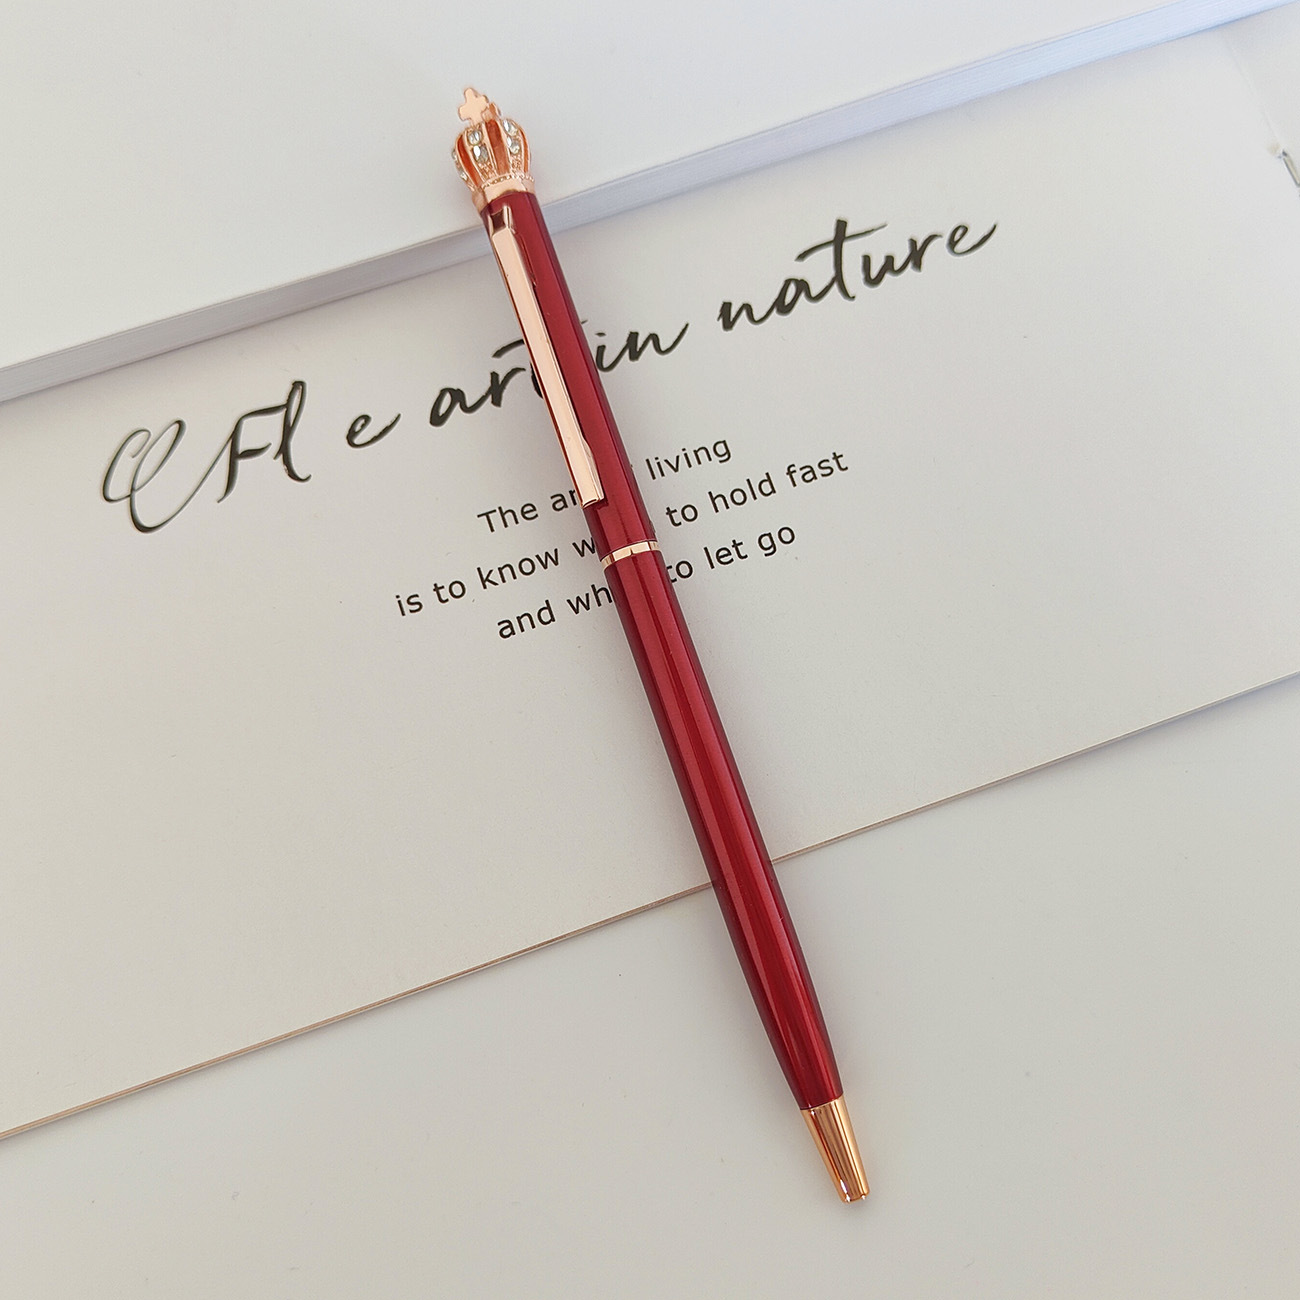 Fl e art in nature
The living
is to know to hold fast
and to let go